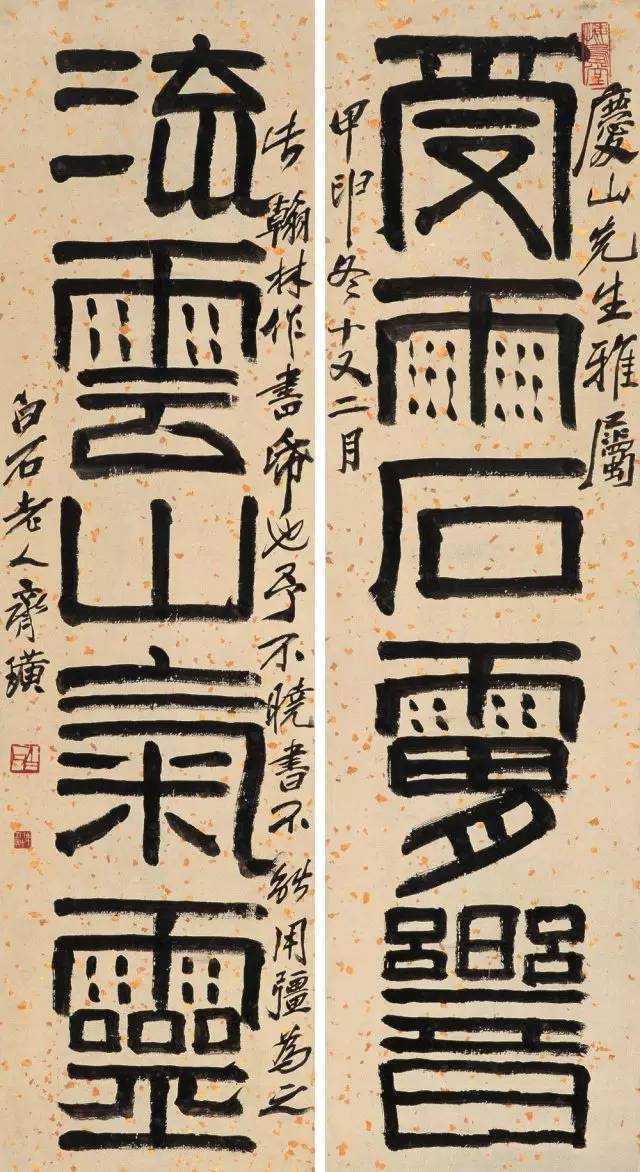 慶山先生雅屬
受雨石響
甲申冬十又二月
翰林作書幣也予不曉書不能用彊為之
流雲山氣靈
白石老人齊璜